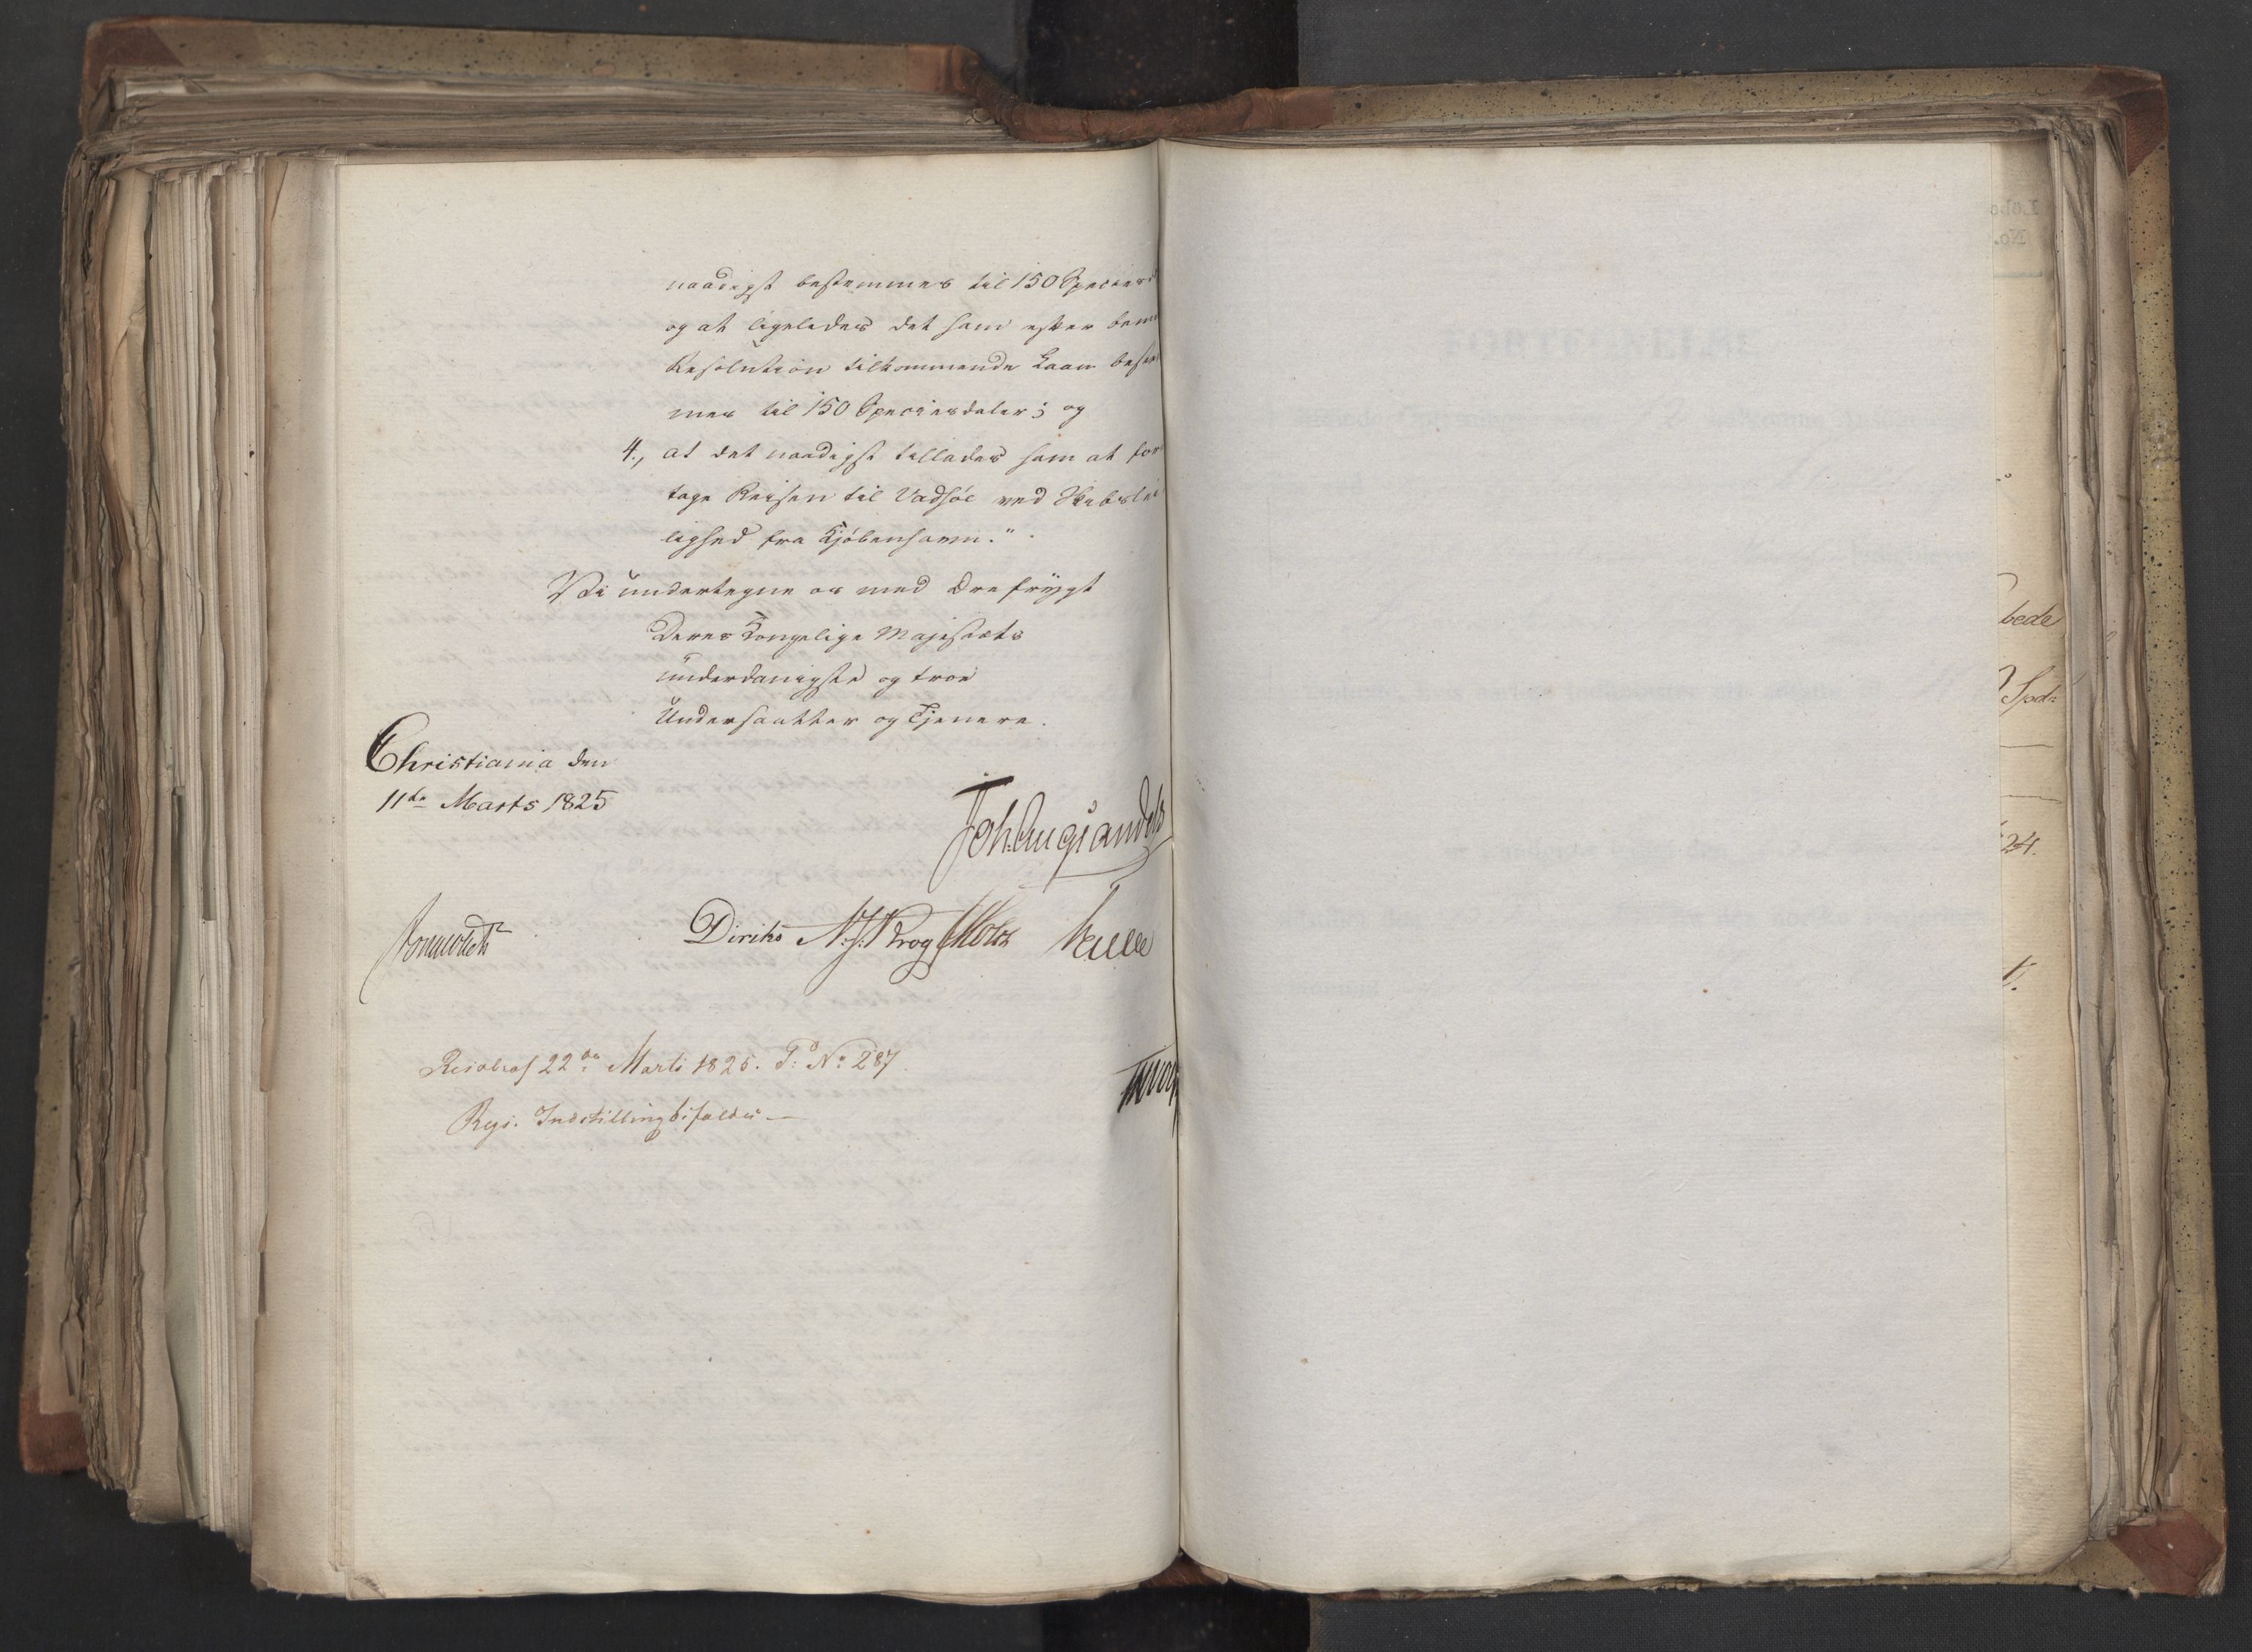 naadigst bestemmes til 150 Species
og at ligeledes det ham efter
Resolution tilkommende Laan
mes til 150 Speciesdaler; og
4., at det naadigst tillades ham at for
tage Reisen til Vadsöe ved Skibslei
lighed fra Kjöbenhavn."
Vi undertegne os med Ærefrygt
Deres Kongelige Majestæts
underdanigste og troe
Undersaatter og Tjenere.
Christiania den
11te Marts 1825
Joh. Aug. Sandels
Diriks N. J. Krog
22de Marts 1825. P: No 287.
Regs. Indstilling bifaldes
bede
Spd:
24.